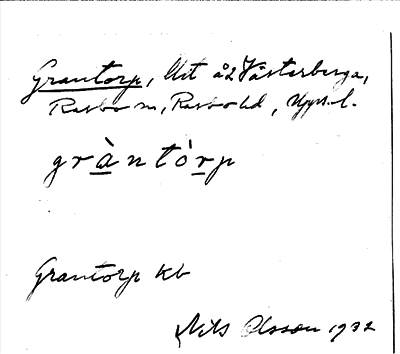 Grantorp, Ust å2 Västerberga,
Rasbo sn, Rasbo hd, Upps. l.
gràntòrp
Grantorp kb
Nils Olsson 1932